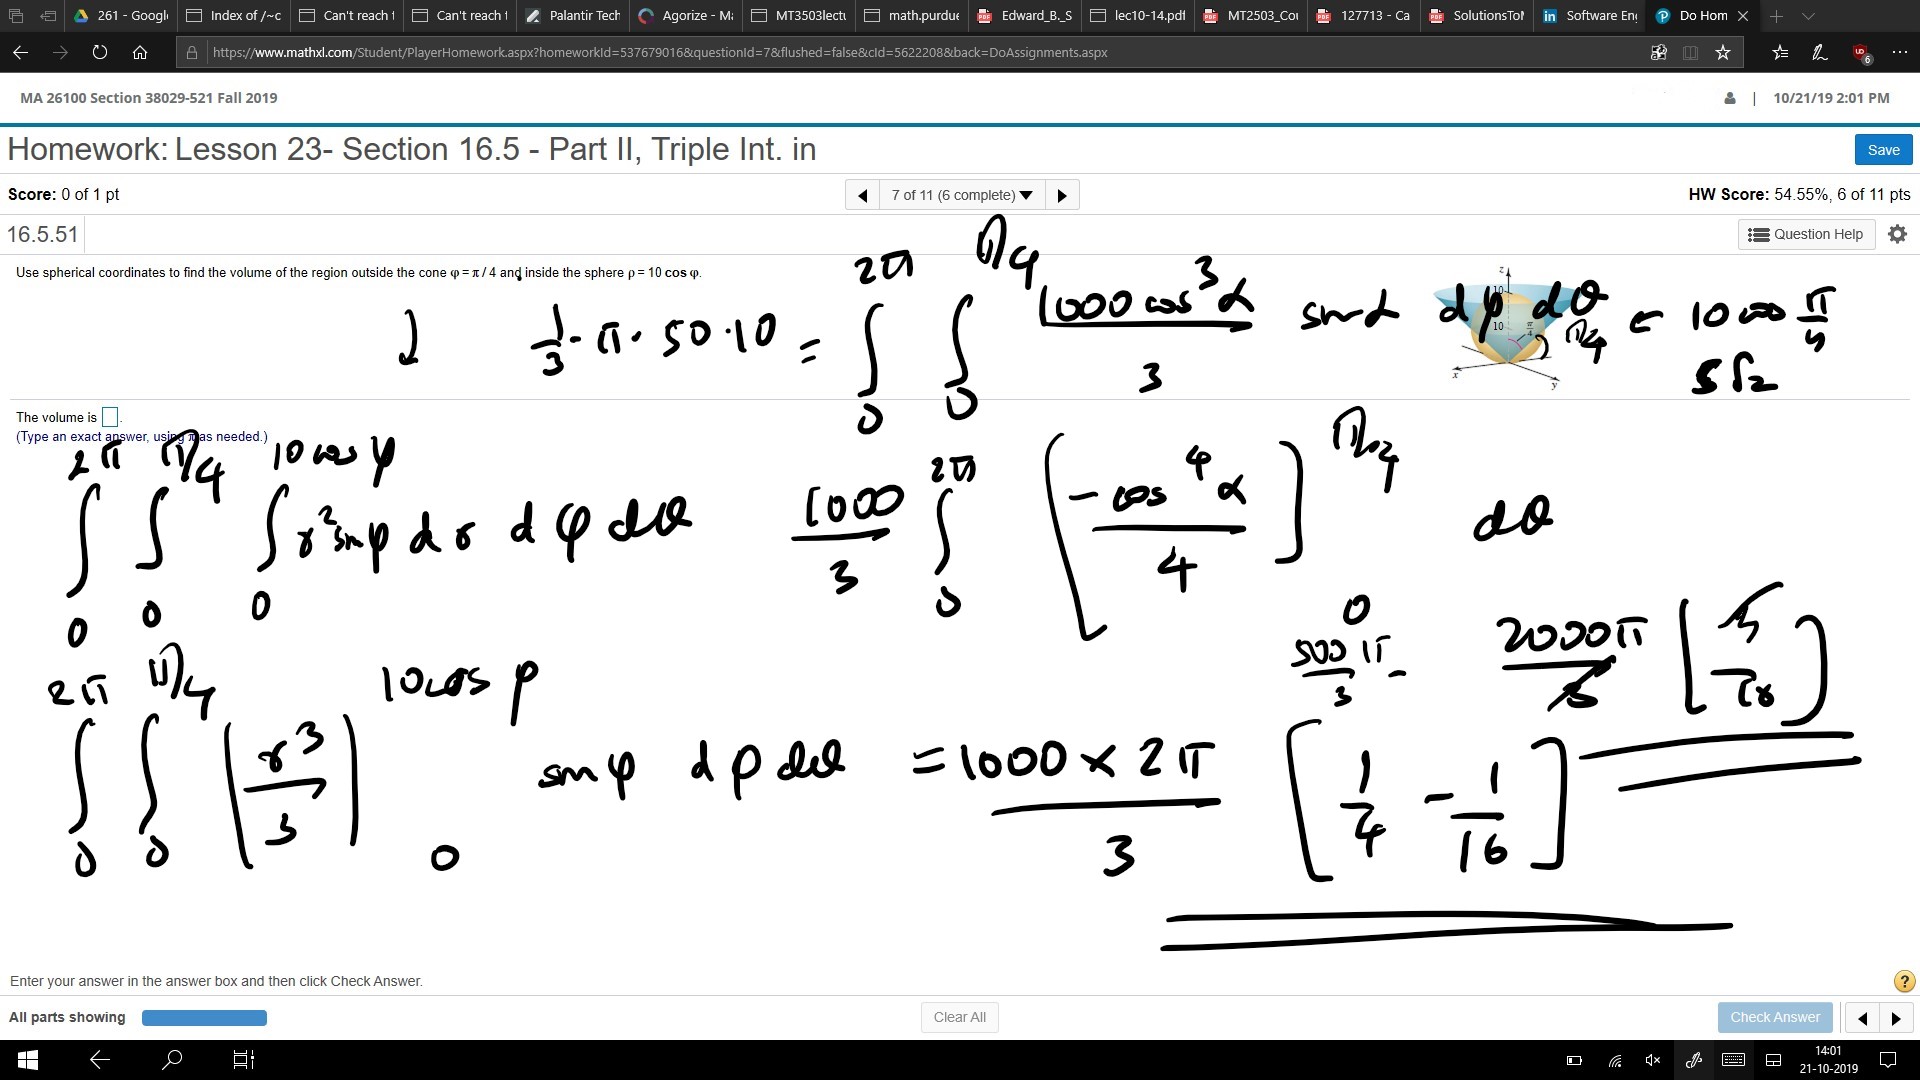 261 - Googl Index of /~c Can't reach t Can't reach t Palantir Tech Agorize - Ma MT3503lectu math.purdue Edward_B._S lec10-14.pdf MT2503_Cou 127713 - Ca SolutionsToM Software Eng Do Hom
https://www.mathxl.com/Student/PlayerHomework.aspx?homeworkId=537679016&questionId=7&flushed=false&cId=5622208&back=DoAssignments.aspx
MA 26100 Section 38029-521 Fall 2019 | 10/21/19 2:01 PM
Homework: Lesson 23- Section 16.5 - Part II, Triple Int. in Save
Score: 0 of 1 pt 7 of 11 (6 complete) HW Score: 54.55%, 6 of 11 pts
16.5.51 Question Help
Use spherical coordinates to find the volume of the region outside the cone φ = π / 4 and inside the sphere ρ = 10 cos φ.
1/3 · π · 50 · 10 = ∫_0^{2π} ∫_0^{π/4} 1000 cos³α / 3 sin α dφ dθ
z 10 10 π/4 x y
The volume is
(Type an exact answer, using π as needed.)
∫_0^{2π} ∫_0^{π/4} ∫_0^{10 cos φ} r² sin φ dr dφ dθ
1000/3 ∫_0^{2π} [-cos⁴α / 4]_0^{π/4} dθ
∫_0^{2π} ∫_0^{π/4} [r³/3]_0^{10 cos φ} sin φ dφ dθ = 1000 × 2π / 3 [1/4 - 1/16]
500π/3 - 2000π/3
Enter your answer in the answer box and then click Check Answer. ?
All parts showing Clear All Check Answer
14:01
21-10-2019